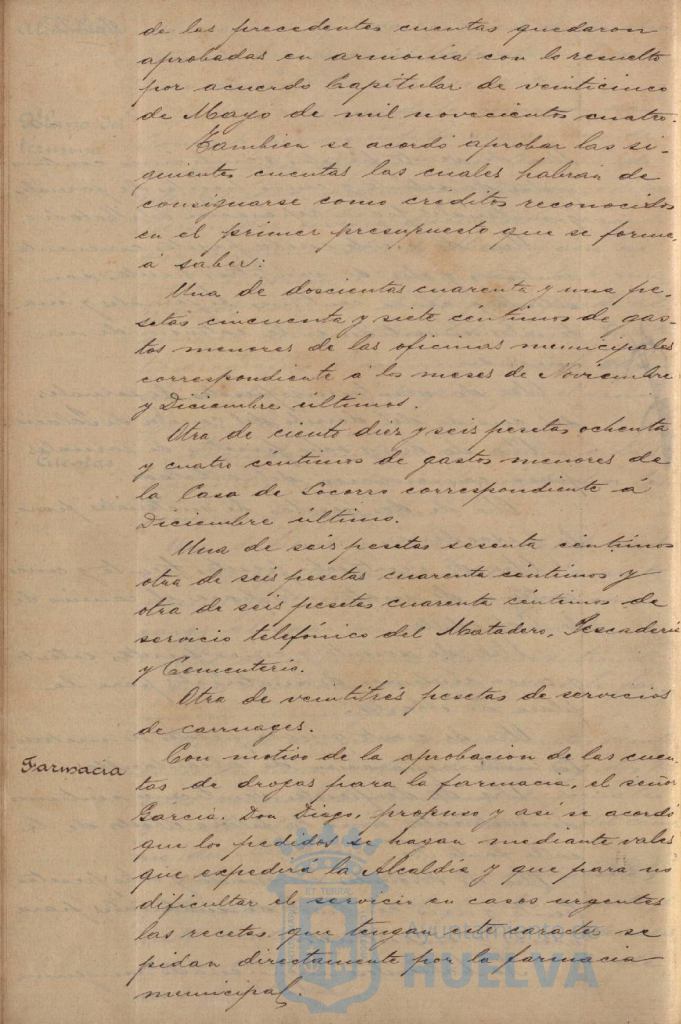 de las precedentes cuentas quedaron
aprobadas en armonia con lo resuelto
por acuerdo Capitular de veinticinco
de Mayo de mil novecientos cuatro.
Tambien se acordó aprobar las si-
guientes cuentas las cuales habrán de
consignarse como créditos reconocidos
en el primer presupuesto que se forme,
á saber:
Una de doscientas cuarenta y una pe-
setas cincuenta y siete céntimos de gas-
tos menores de las oficinas municipales
correspondiente á los meses de Noviembre
y Diciembre últimos.
Otra de ciento diez y seis pesetas ochenta
y cuatro céntimos de gastos menores de
la Casa de Socorro correspondiente á
Diciembre último.
Una de seis pesetas sesenta céntimos
otra de seis pesetas cuarenta céntimos y
otra de seis pesetas cuarenta céntimos de
servicio telefónico del Matadero, Pescaderia
y Cementerio.
Otra de veintitrés pesetas de servicios
de carruages.
Farmacia
Con motivo de la aprobacion de las cuen-
tas de drogas para la farmacia, el señor
Garcia. Don Diego, propuso y así se acordó
que los pedidos se hagan mediante vales
que expedirá la Alcaldía y que para no
dificultar el servicio en casos urgentes
las recetas que tengan este caracter se
pidan directamente por la farmacia
municipal.
ET TERRÆ
Ayuntamiento de
HUELVA